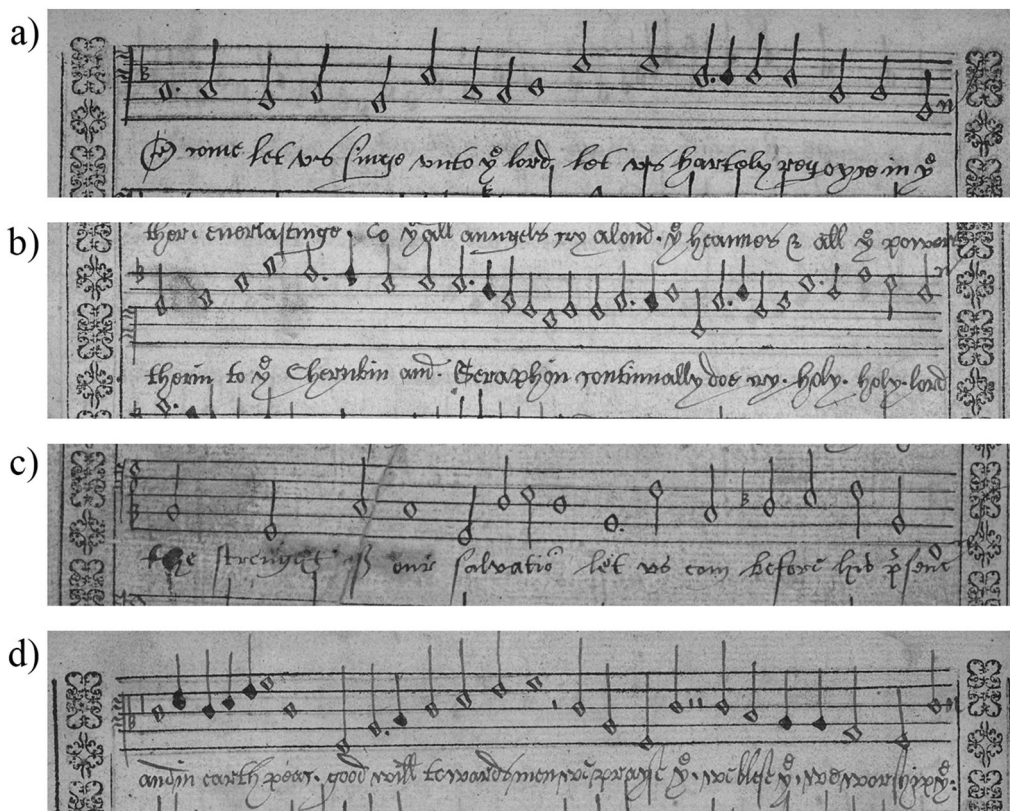 a)
O come let vs singe vnto yᵉ lord let vs hartely reyoyce in yᵉ
b)
ther everlastinge. To yᵉ all anngels cry aloud. yᵉ heavens & all yᵉ powers
therin to yᵉ Cherubin and. Seraphin continually doe cry. holy. holy. lord
c)
the strenght our salvatiō let vs com before his
d)
and in earth peac. good will towards men we prayse yᵉ. we blese yᵉ. we worshipp yᵉ.